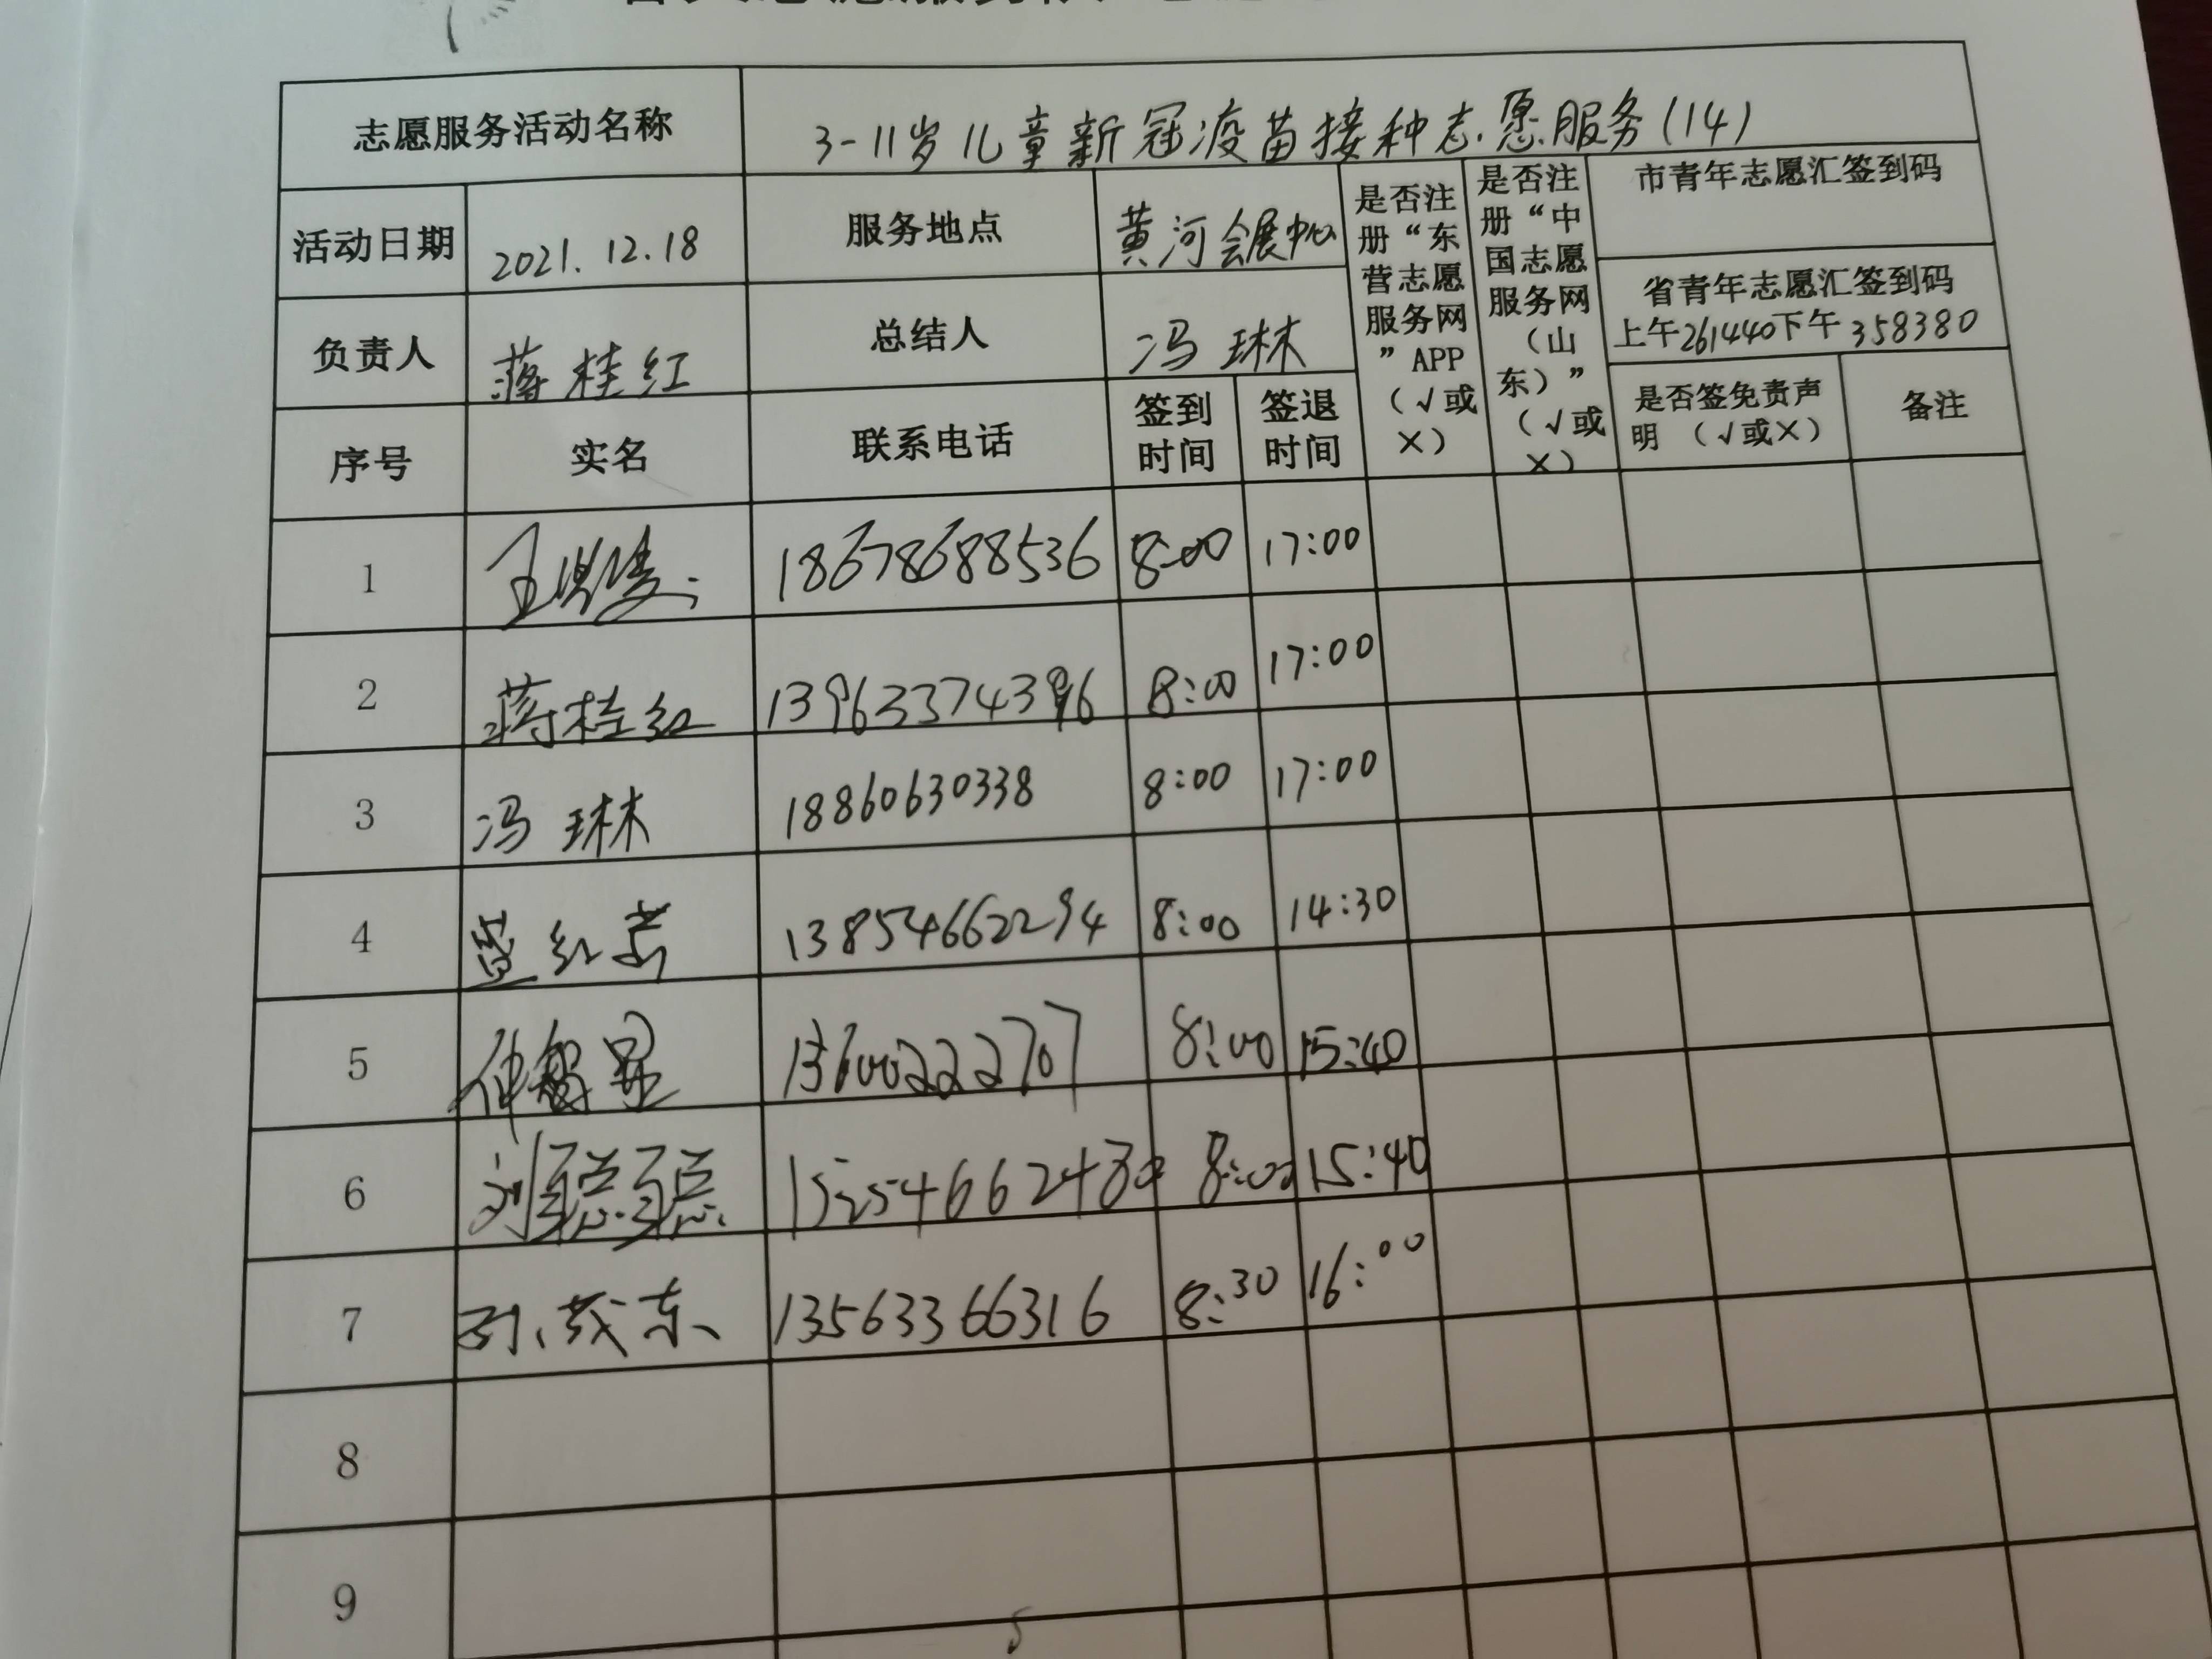 志愿服务活动名称 3-11岁儿童新冠疫苗接种志愿服务(14)
活动日期 2021.12.18 服务地点 黄河会展中心
是否注册“东营志愿服务网”APP（√或×）
是否注册“中国志愿服务网（山东）”（√或×）
市青年志愿汇签到码
省青年志愿汇签到码
上午261440下午358380
负责人 蒋桂红 总结人 冯琳
序号 实名 联系电话 签到时间 签退时间 是否签免责声明（√或×） 备注
1 18678688536 8:00 17:00
2 蒋桂红 8:00 17:00
3 冯琳 18860630338 8:00 17:00
4 13854662294 8:00 14:30
5 8:00 15:40
6 刘聪聪 15254662480 8:00 15:40
7 茂东 13563366316 8:30 16:00
8
9